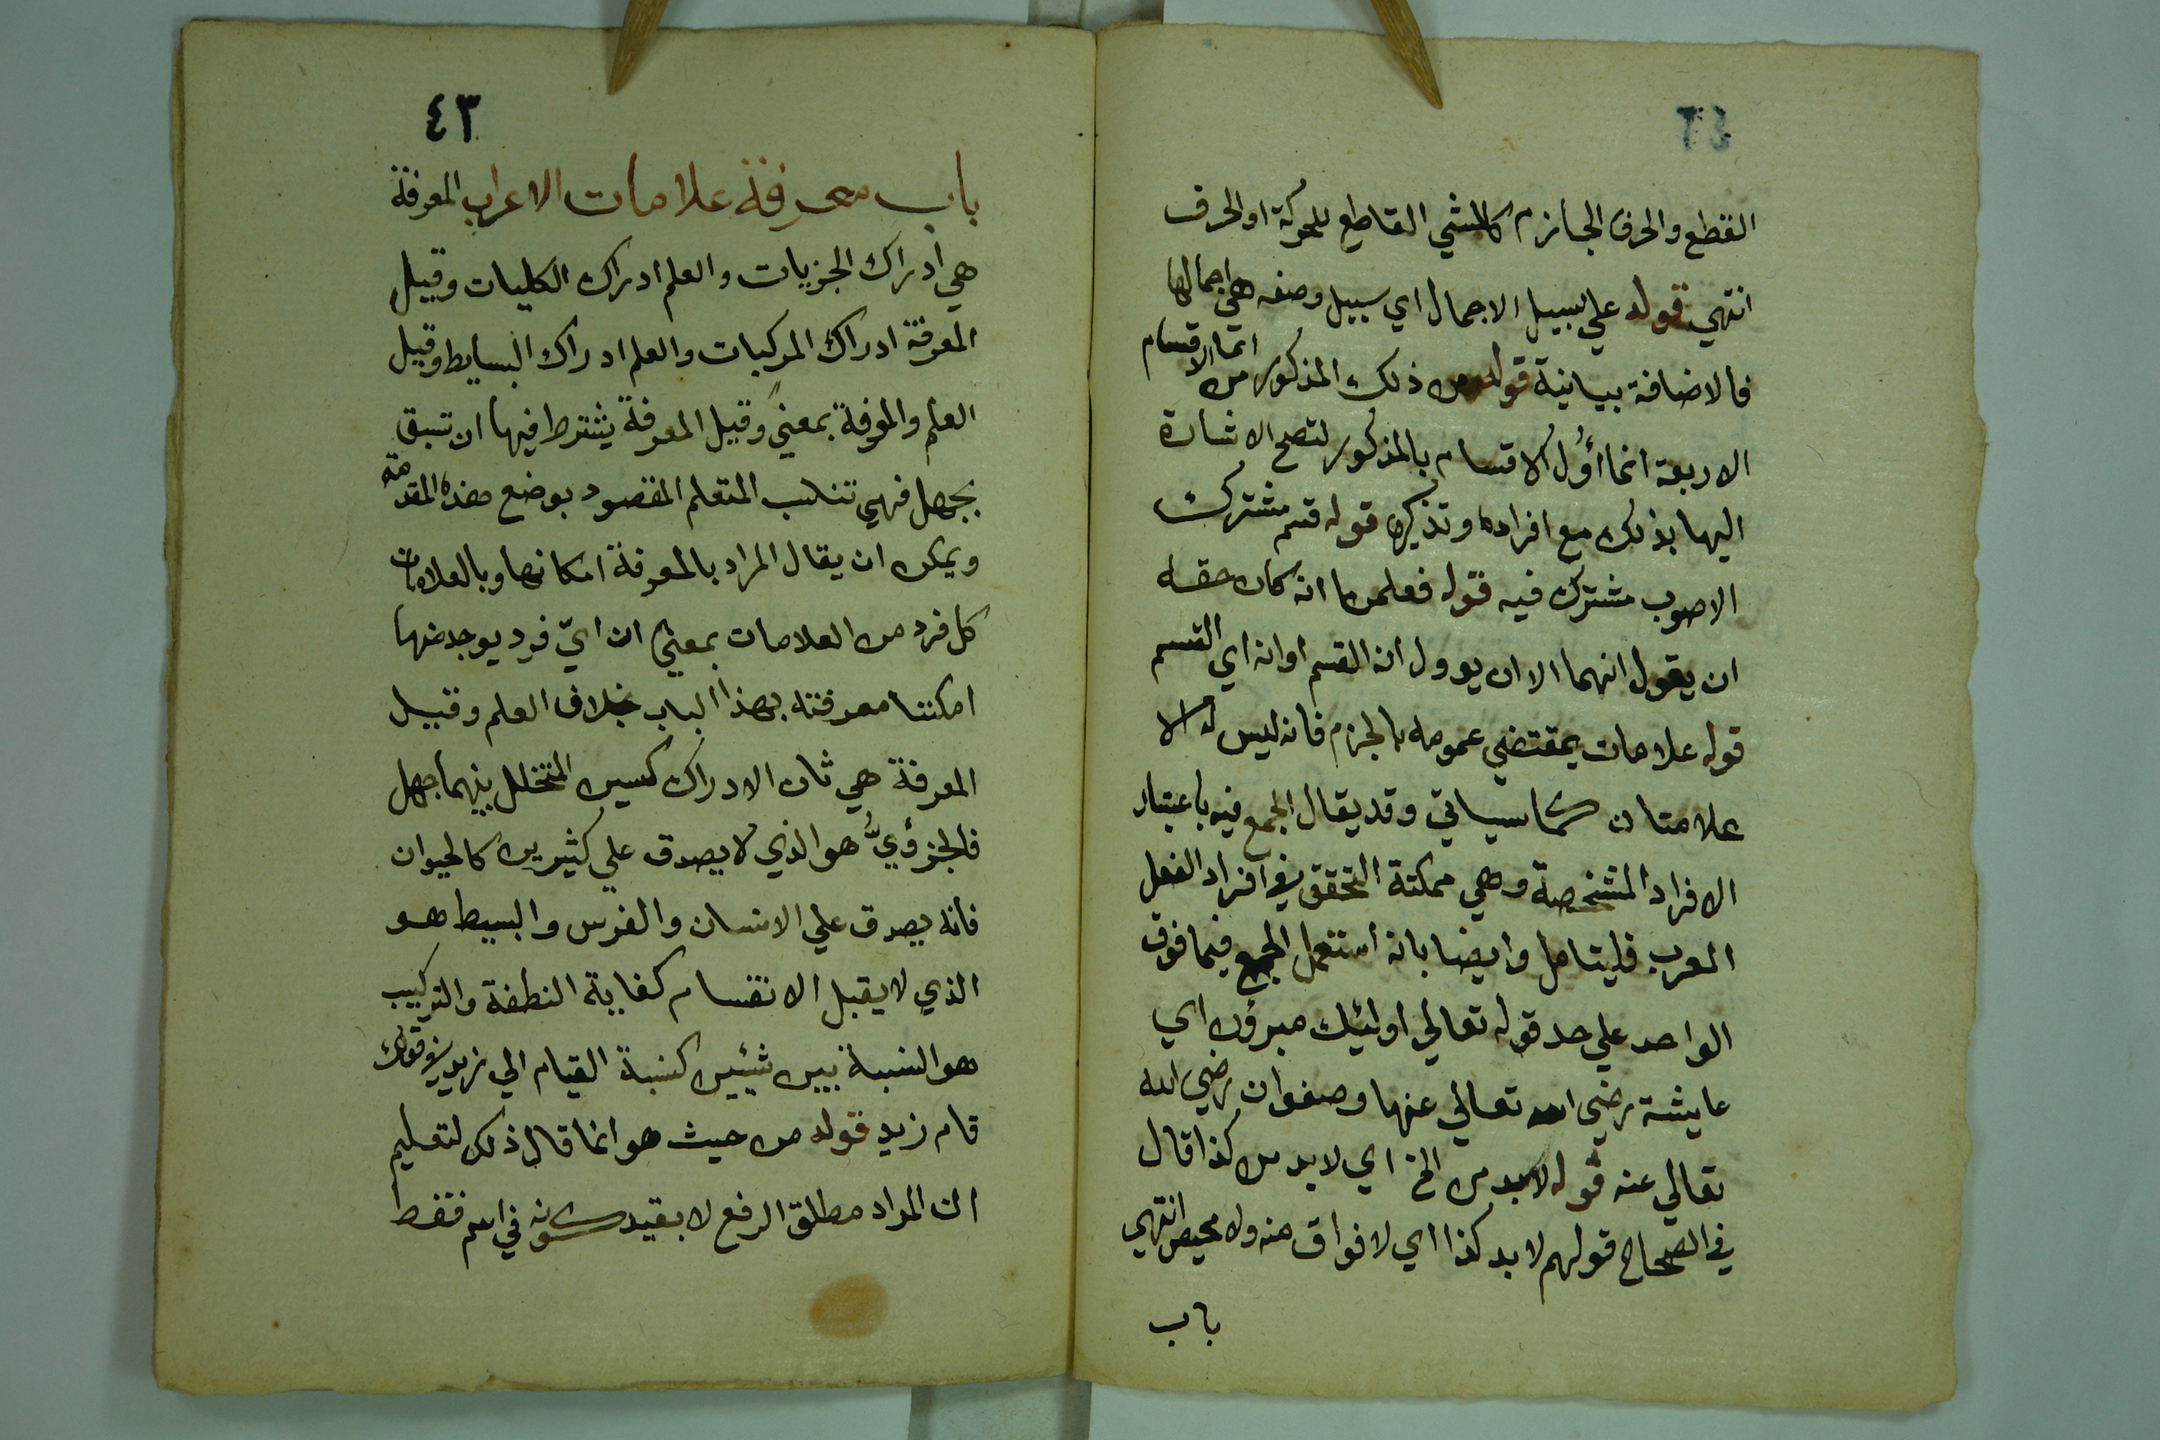 القطع والحرف الجازم كالشي القاطع للحركة او الحرف
انتهي قوله علي سبيل الاجمال اي سبيل وصفه هي اجمالها
فالاضافة بيانية قوله من ذلك المذكور من الاقسام
الاربعة انما اوُل الاقسام بالمذكور لتصح الاشارة
اليها بذلك مع افراده وتذكيره قوله قسم مشترك
الاصوب مشترك فيه قوله فعلم انه كان حقه
ان يقول انهما الا ان يوول انه القسم او انه اي القسم
قوله علامات يقتضي عمومه بالجزم فانه ليس له الا
علامتان كما سياتي وقد يقال الجمع فيه باعتبار
الافراد المشخصة وهي ممكنة التحقق في افراد الفعل
المعرب فليتامل وايضا بانه استعمل الجمع فيما فوق
الواحد علي حد قوله تعالي اولئيك مبرؤن اي
عايشة رضي الله تعالي عنها وصفوان رضي الله
تعالي عنه قوله لابد من الخ اي لابد من كذا قال
في الصحاح قولهم لابد كذا اي لا فراق منه ولا محيص انتهي
باب
٤٣
باب معرفة علامات الاعراب المعرفة
هي ادراك الجزيات والعلم ادراك الكليات وقيل
المعرفة ادراك المركبات والعلم ادراك البسايط وقيل
العلم والمعرفة بمعنيً وقيل المعرفة يشترط فيها ان تسبق
بجهل فهي تناسب المتعلم المقصود بوضع هذه المقدمة
ويمكن ان يقال المراد بالمعرفة امكانها وبالعلامات
كل فرد من العلامات بمعني ان ايّ فرد يوجد منها
امكننا معرفته بهذا الباب بخلاف العلم وقيل
المعرفة هي ثان الادراك كسين المتخلل بينهما جهل
فالجزؤيُّ هو الذي لا يصدق علي كثيرين كالحيوان
فانه يصدق علي الانسان والفرس والبسيط هو
الذي لا يقبل الانقسام كغاية النطفة والتركيب
هو النسبة بين شيئين كنسبة القيام الي زيد في قولك
قام زيد قوله من حيث هو انما قال ذلك لتعليم
ان المراد مطلق الرفع لا بقيد كونه في اسم فقط